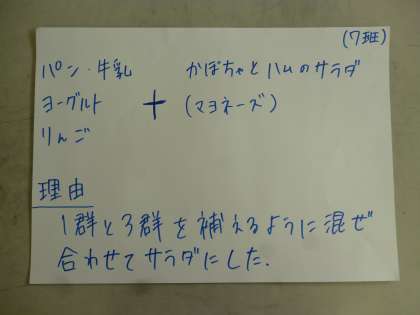 (7班)
パン・牛乳 かぼちゃとハムのサラダ
ヨーグルト + (マヨネーズ)
りんご
理由
1群と3群を補えるように混ぜ
合わせてサラダにした.